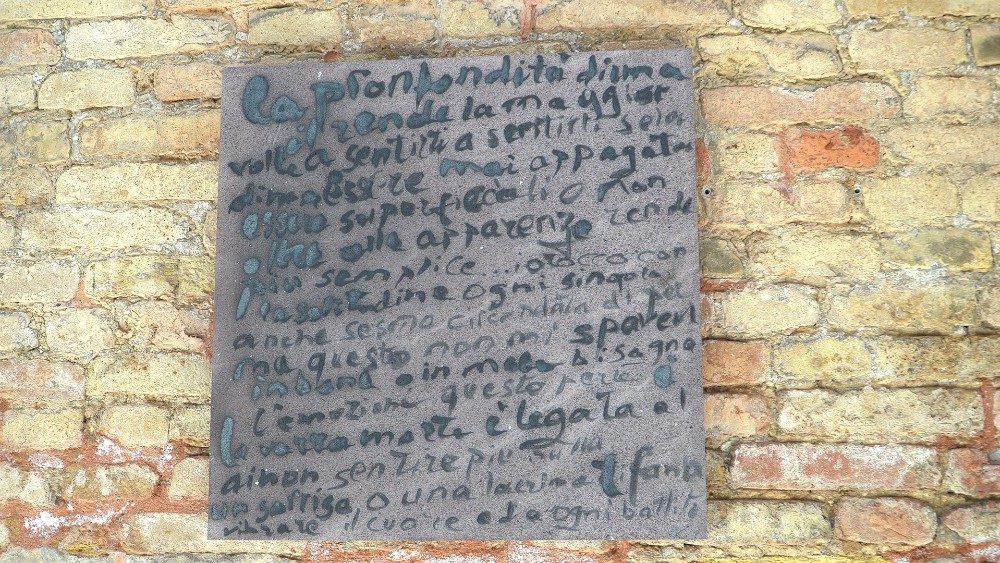 la profondità di ma
di rende la maggior
volte a sentirti a sentirti solo
di ma essere mai appagata
essere superficiali o non
oltre alla apparenza rende
più semplice .. io tocco con
la solitudine ogni singola
anche sesono circondata di per
ma questo non mi spaven
in bene o in male bisogna
l'emozione questo perché
la vorra morte è legata al
ai non sentire più nulla
un sorriso o una lacrima ti fann
vibrare il cuore ed a ogni battito